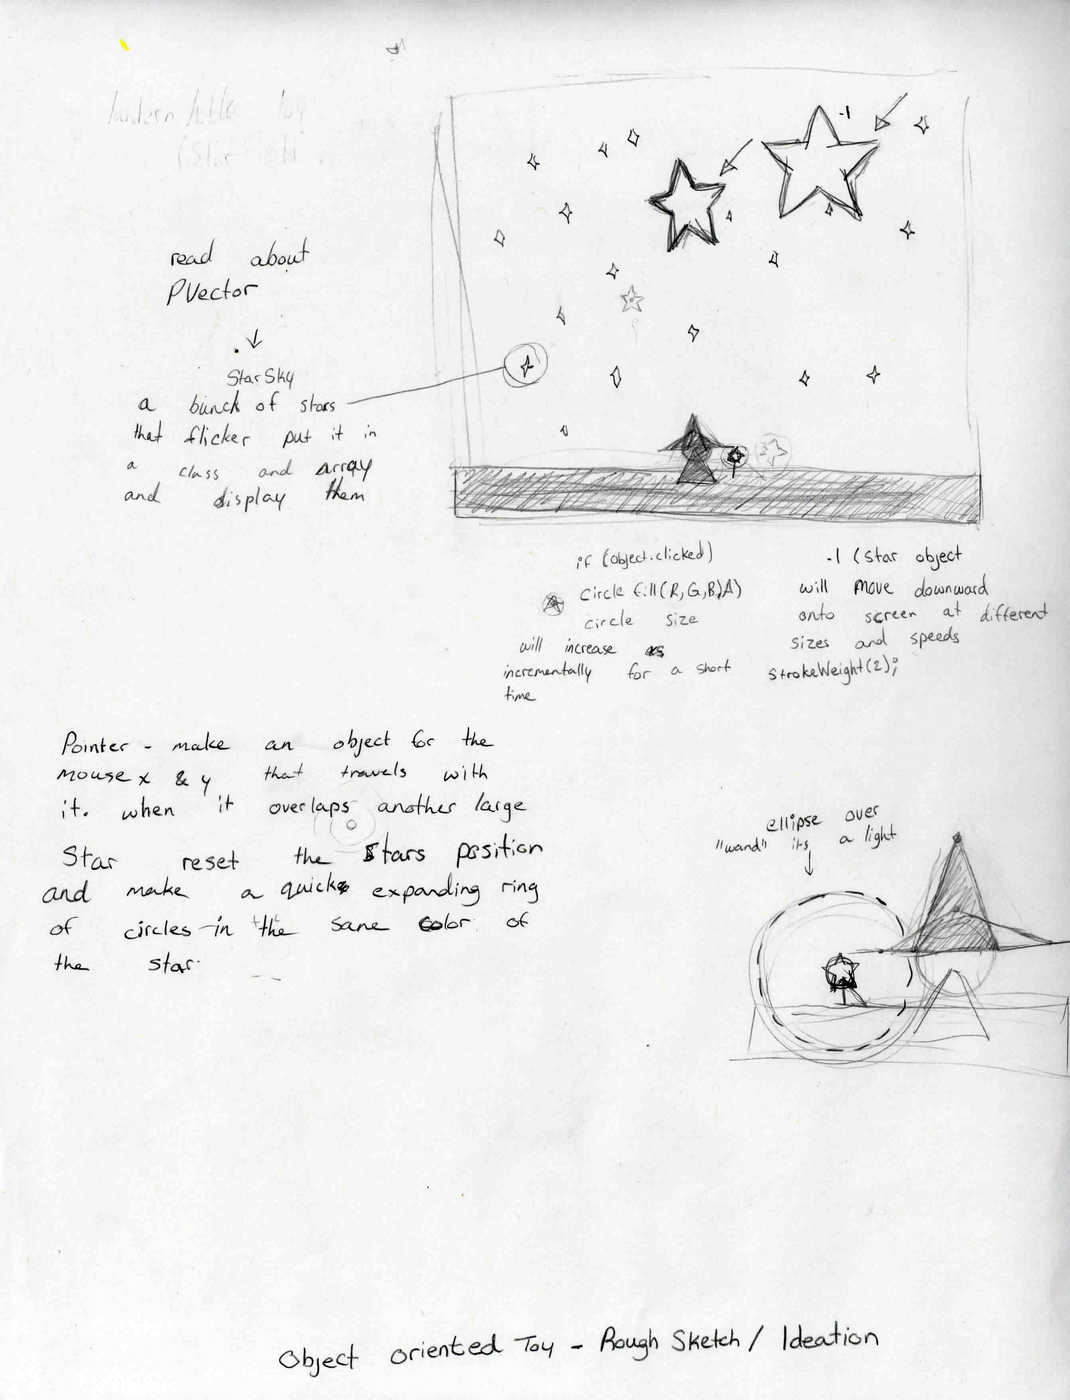 read about
PVector
StarSky
a bunch of stars
that flicker put it in
a class and array
and display them
-1
if (object.clicked)
circle fill(R,G,B,A)
circle size
will increase as
incrementally for a short
time
-1 (Star object
will move downward
onto screen at different
sizes and speeds
StrokeWeight(2);
Pointer - make an object for the
mouse x & y that travels with
it. when it overlaps another large
Star reset the stars position
and make a quick expanding ring
of circles in the same color of
the star.
ellipse over
"wand" its a light
Object Oriented Toy - Rough Sketch / Ideation